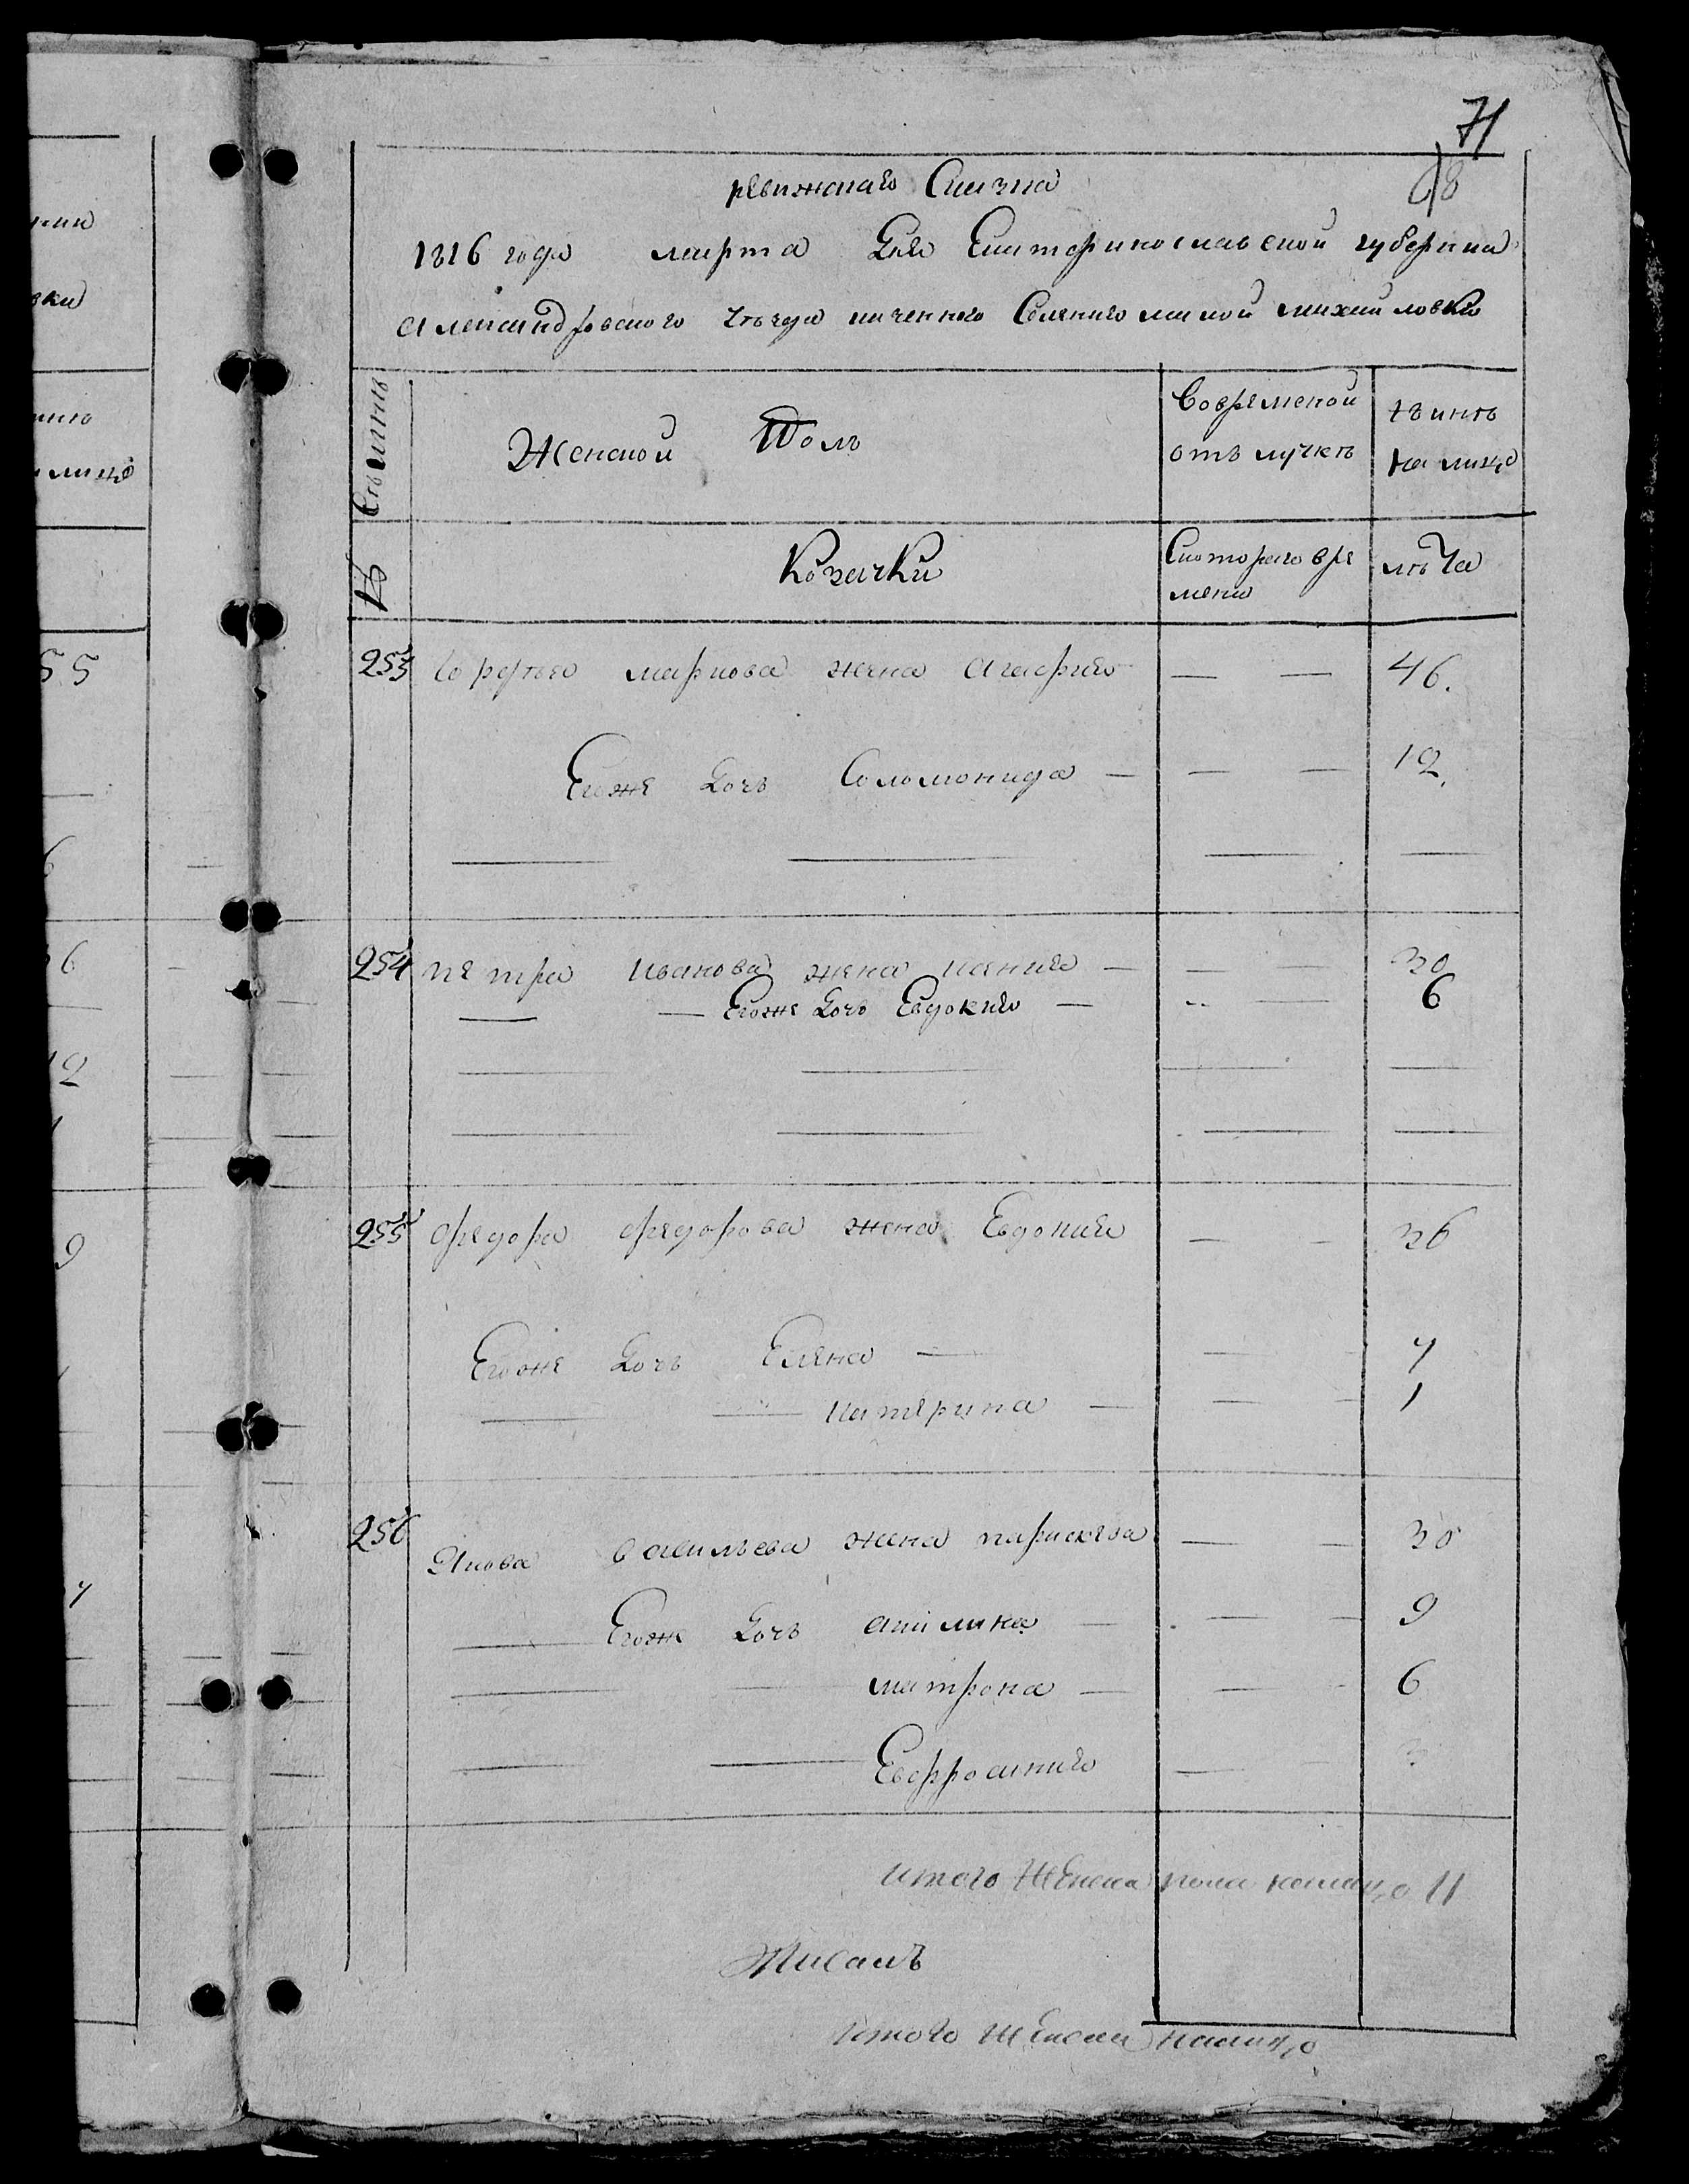 71
68
ревижскаго Списка
1816 года марта Дня Екатеринославской губернии
Александровского уѣзда казенного Селения малой михайловки
Семьи
№
Женской Полъ
Во временой
отъ лучкѣ
нынѣ
на лицо
Козачки
Скоторого вре
мени
лѣта
253 Сергѣя маркова жена Агафия — — 46.
Егоже Дочь Соломонида — — — 12.
254 петра иванова жена ксения — — — 30
— — Егоже Дочь Евдокия — — — 6
255 федора федорова жена Евдокия — — 36
Егоже Дочь Елена — — — 7
— — катерина — — — 1
256 Якова васильева жена параскева — — 30
— Егоже Дочь акилина — — — 9
— — матрона — — — 6
— — Евфросиния — — 3
итого Женска пола налицо 11
Писалъ
итого женска налицо
55
6
12
9
7